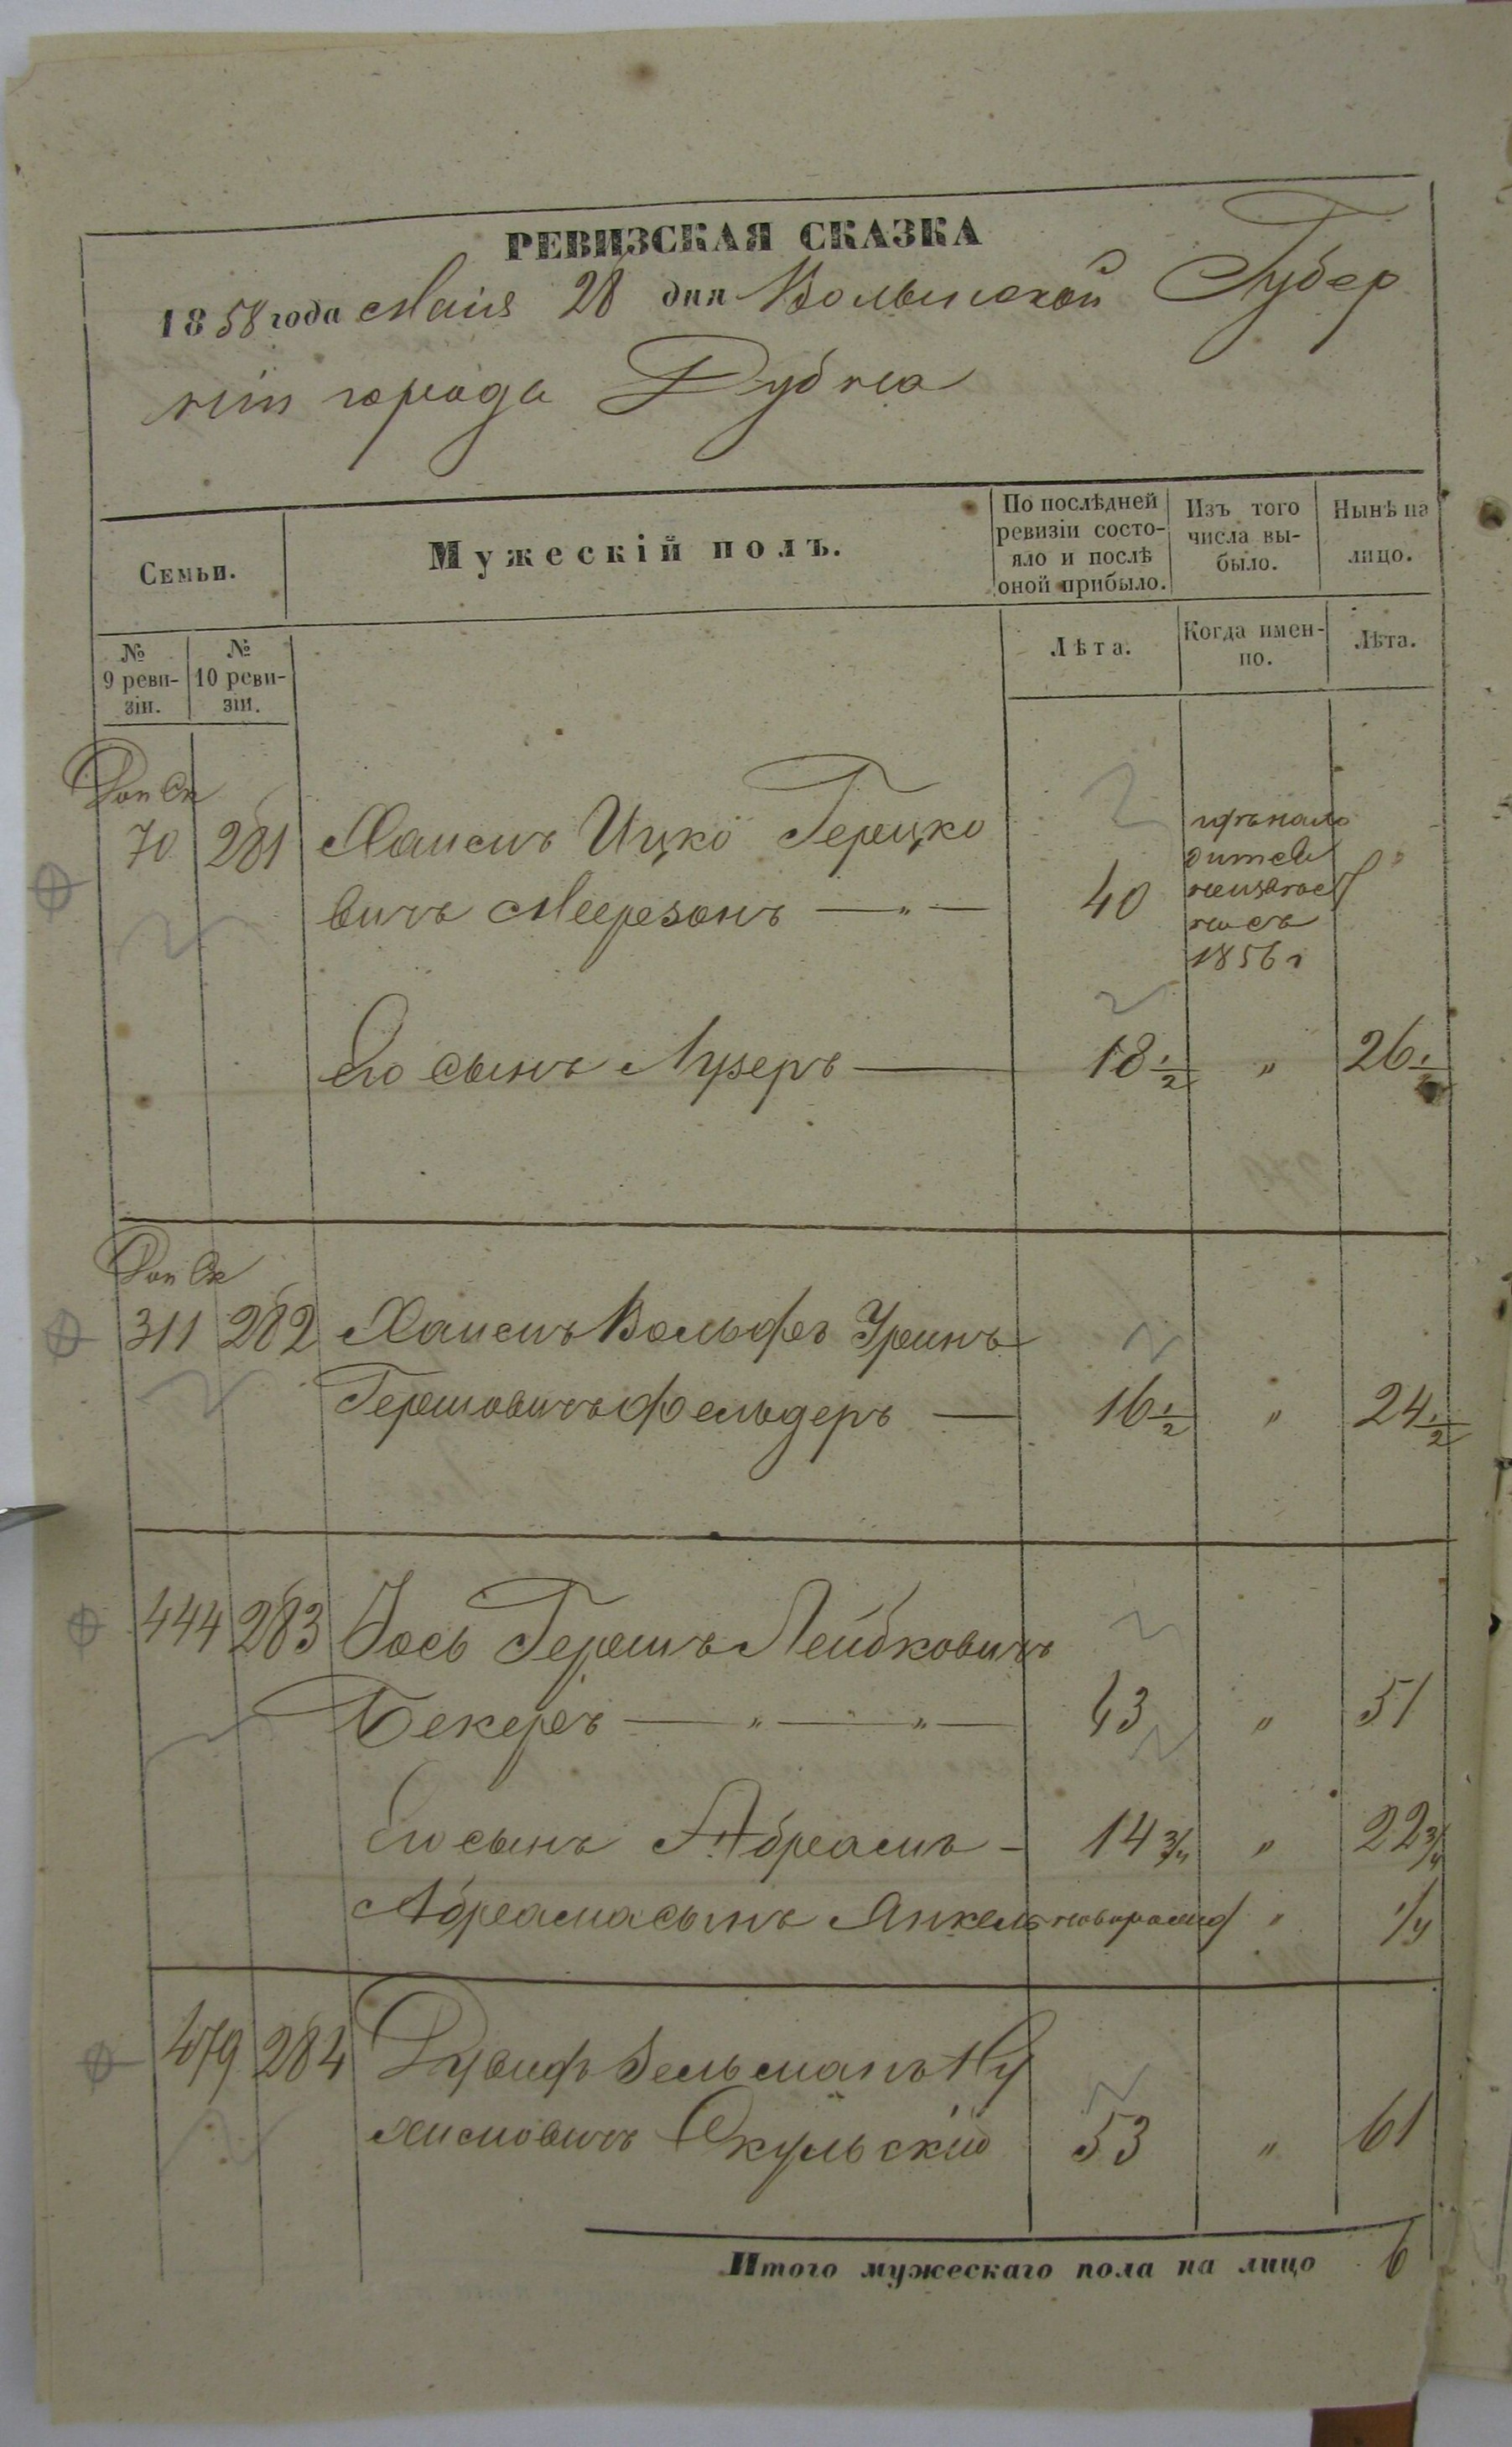 РЕВИЗСКАЯ СКАЗКА
1858 года Маія 28 дня Волынской Губер
ніи города Дубна
Семьи.
Мужескій полъ.
По послѣдней ревизіи состо-
яло и послѣ
оной прибыло.
Изъ того
числа вы-
было.
Нынѣ на
лицо.
№
9 реви-
зіи.
№
10 реви-
зіи.
Лѣта.
Когда имен-
но.
Лѣта.
Доп Ск
70 281 Хаимъ Ицко Герцко
вичъ Меерзонъ — „ — 40
1856 г
Его сынъ Лузеръ — 18 1/2 „ 26 1/2
Доп Ск
311 282 Хаимъ Вольфъ
Гершовичъ Фельдеръ — 16 1/2 „ 24 1/2
444 283 Іось Гершъ Лейбковичъ
Бекеръ — „ — „ — 43 „ 51
Его сынъ Абрамъ - 14 3/4 „ 22 3/4
Абрама сынъ Янкель новорожд „ 1/4
479 284 Дувидъ Зельманъ Ну
химовичъ Окульскій 53 „ 61
Итого мужескаго пола на лицо 6